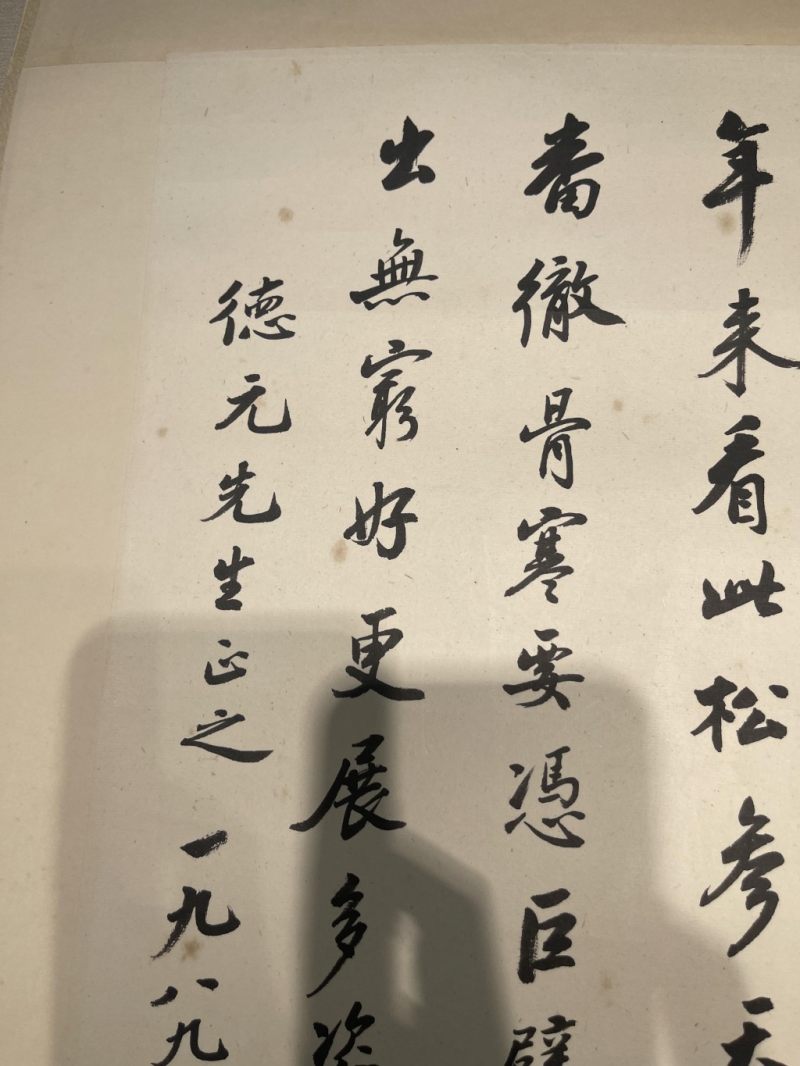 年来看此松参天
番徹骨寒要憑巨擘
出無窮好更展多姿
德元先生正之 一九八九